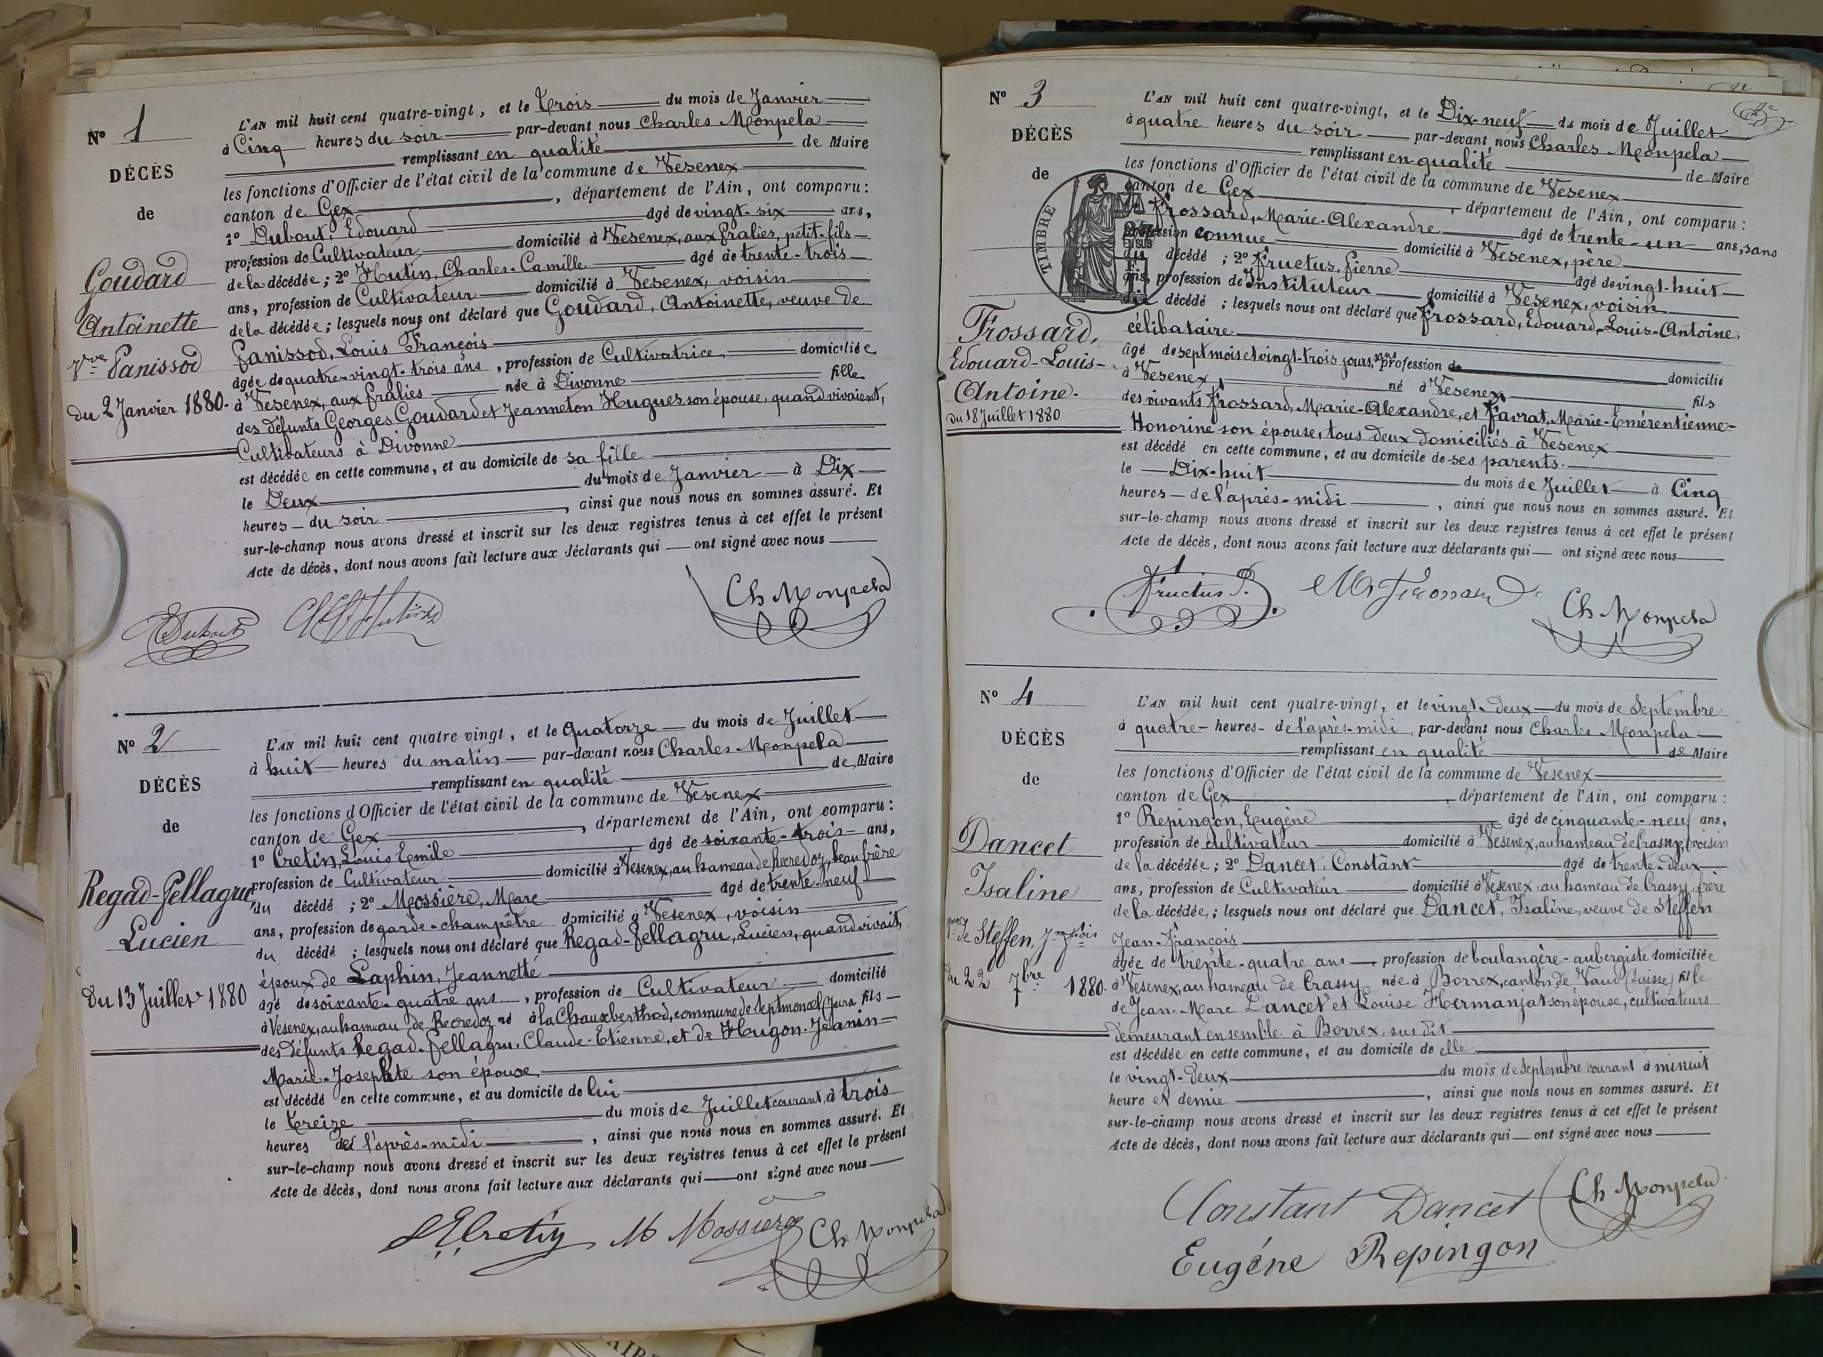 N° 1
DÉCÈS
de
Goudard
Antoinette
Vve Panissod
du 2 Janvier 1880.
L'AN mil huit cent quatre-vingt, et le Trois du mois de Janvier
à Cinq heures du soir par-devant nous Charles Monpela
remplissant en qualité de Maire
les fonctions d'Officier de l'état civil de la commune de Vesenex
canton de Gex, département de l'Ain, ont comparu :
1° Dubout, Edouard âgé de vingt-six ans,
profession de Cultivateur domicilié à Vesenex, aux Pralies, petit-fils
de la décédée ; 2° Hutin, Charles-Camille âgé de trente-trois
ans, profession de Cultivateur domicilié à Vesenex, voisin
de la décédée ; lesquels nous ont déclaré que Goudard, Antoinette, veuve de
Panissod, Louis François
âgée de quatre-vingt-trois ans, profession de Cultivatrice domiciliée
à Vesenex, aux Pralies née à Divonne fille
des défunts Georges Goudard et Jeanneton Hugues son épouse, quand vivaient,
Cultivateurs à Divonne
est décédée en cette commune, et au domicile de sa fille
le Deux du mois de Janvier à Dix
heures du soir, ainsi que nous nous en sommes assuré. Et
sur-le-champ nous avons dressé et inscrit sur les deux registres tenus à cet effet le présent
Acte de décès, dont nous avons fait lecture aux déclarants qui ont signé avec nous
E Dubout
Ch Monpela
N° 2
DÉCÈS
de
Regad-Pellagru
Lucien
Du 13 Juillet 1880
L'AN mil huit cent quatre vingt, et le Quatorze du mois de Juillet
à huit heures du matin par-devant nous Charles Monpela
remplissant en qualité de Maire
les fonctions d'Officier de l'état civil de la commune de Vesenex
canton de Gex, département de l'Ain, ont comparu :
1° Cretin, Louis Emile âgé de soixante-trois ans,
profession de Cultivateur domicilié à Vesenex, au hameau de Recredoz, beau frère
du décédé ; 2° Mossière, Marc âgé de trente-neuf
ans, profession de garde-champêtre domicilié à Vesenex, voisin
du décédé ; lesquels nous ont déclaré que Regad-Pellagru, Lucien, quand vivait,
époux de Laphin, Jeannette
âgé de soixante-quatre ans, profession de Cultivateur domicilié
à Vesenex, au hameau de Recredoz né à la Chauxberthod, commune de Septmoncel, Jura fils
des défunts Regad-Pellagru, Claude-Etienne, et de Hugon-Jeanin
Marie-Josephte son épouse
est décédé en cette commune, et au domicile de lui
le Treize du mois de Juillet courant à trois
heures de l'après-midi, ainsi que nous nous en sommes assuré. Et
sur-le-champ nous avons dressé et inscrit sur les deux registres tenus à cet effet le présent
Acte de décès, dont nous avons fait lecture aux déclarants qui ont signé avec nous
L E Cretin M Mossière Ch Monpela
N° 3
DÉCÈS
de
TIMBRE
Frossard,
Edouard-Louis-
Antoine.
du 18 Juillet 1880
L'AN mil huit cent quatre-vingt, et le Dix-neuf du mois de Juillet
à quatre heures du soir par-devant nous Charles Monpela
remplissant en qualité de Maire
les fonctions d'Officier de l'état civil de la commune de Vesenex
canton de Gex, département de l'Ain, ont comparu :
Frossard, Marie-Alexandre âgé de trente-un ans, sans
profession connue domicilié à Vesenex, père
du décédé ; 2° Fructus, Pierre âgé de vingt-huit
ans, profession de Instituteur domicilié à Vesenex, voisin
du décédé ; lesquels nous ont déclaré que Frossard, Edouard-Louis-Antoine
célibataire
âgé de sept mois et vingt-trois jours, sans profession de domicilié
à Vesenex né à Vesenex fils
des vivants Frossard, Marie-Alexandre, et Favrat, Marie-Emérentienne-
Honorine son épouse, tous deux domiciliés à Vesenex
est décédé en cette commune, et au domicile de ses parents.
le Dix-huit du mois de Juillet à Cinq
heures de l'après-midi, ainsi que nous nous en sommes assuré. Et
sur-le-champ nous avons dressé et inscrit sur les deux registres tenus à cet effet le présent
Acte de décès, dont nous avons fait lecture aux déclarants qui ont signé avec nous
Fructus P. Ch Monpela
N° 4
DÉCÈS
de
Dancet
Isaline
Vve de Steffen, J. fçois
du 22 7bre 1880.
L'AN mil huit cent quatre-vingt, et le vingt-deux du mois de Septembre
à quatre heures de l'après-midi par-devant nous Charles Monpela
remplissant en qualité de Maire
les fonctions d'Officier de l'état civil de la commune de Vesenex
canton de Gex, département de l'Ain, ont comparu :
1° Repingon, Eugène âgé de cinquante-neuf ans,
profession de cultivateur domicilié à Vesenex, au hameau de Crassy, voisin
de la décédée ; 2° Dancet, Constant âgé de trente-deux
ans, profession de Cultivateur domicilié à Vesenex, au hameau de Crassy, frère
de la décédée ; lesquels nous ont déclaré que Dancet, Isaline, veuve de Steffen
Jean-François
âgée de trente-quatre ans profession de boulangère-aubergiste domiciliée
à Vesenex, au hameau de Crassy née à Borrex, canton de Vaud (Suisse) fille
de Jean-Marc Dancet et Louise Hermanjat son épouse, cultivateurs
demeurant ensemble à Borrex sus dit
est décédée en cette commune, et au domicile de elle
le vingt-deux du mois de Septembre courant à minuit
heure et demie, ainsi que nous nous en sommes assuré. Et
sur-le-champ nous avons dressé et inscrit sur les deux registres tenus à cet effet le présent
Acte de décès, dont nous avons fait lecture aux déclarants qui ont signé avec nous
Constant Dancet Ch Monpela
Eugéne Repingon